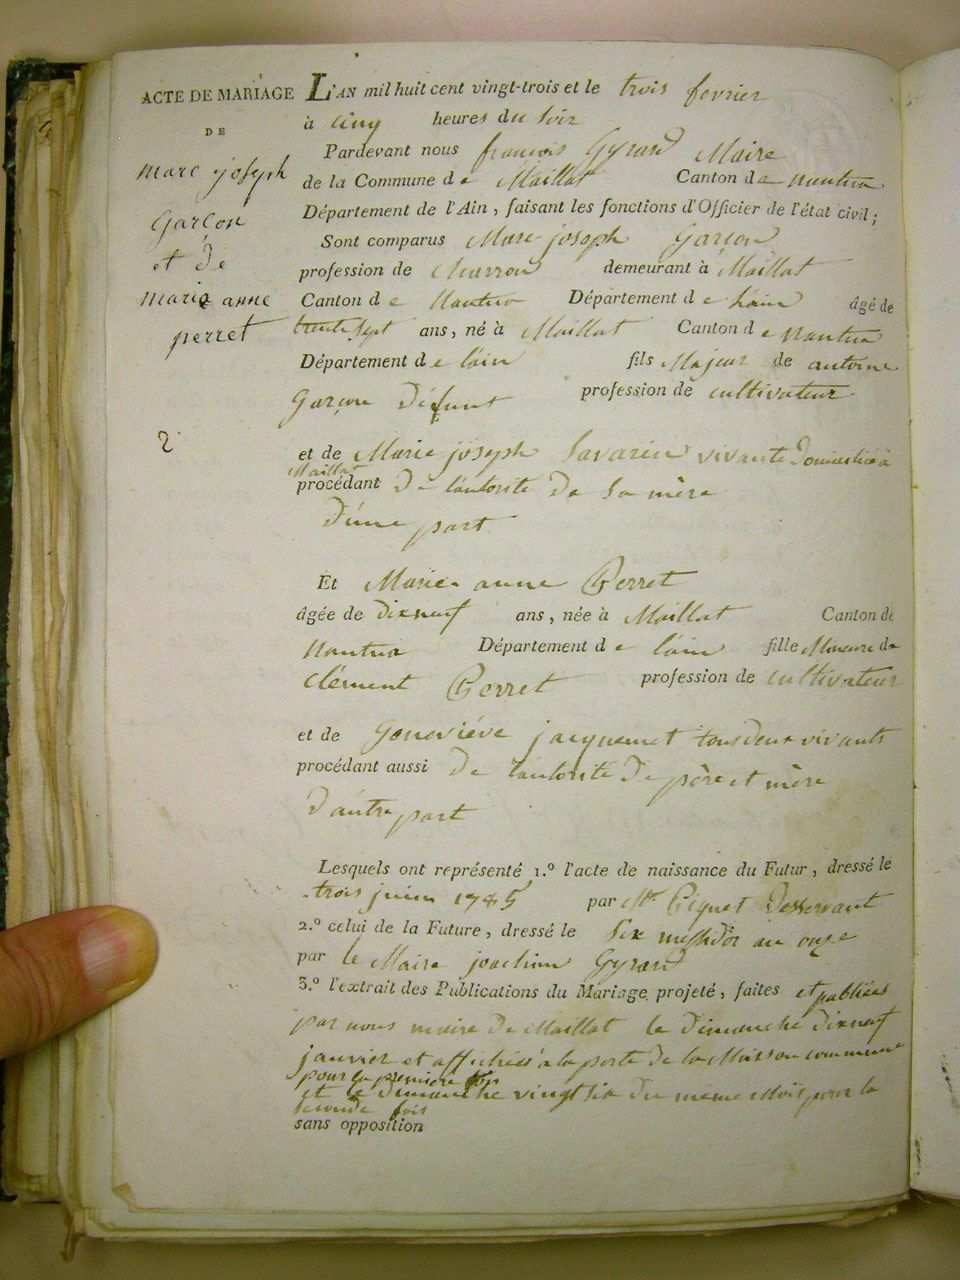 ACTE DE MARIAGE
DE
marc joseph
Garçon
et de
marie anne
perret
2
L'AN mil huit cent vingt-trois et le trois fevrier
à cinq heures du soir
Pardevant nous françois Gyrard Maire
de la Commune de Maillat Canton de nantua
Département de l'Ain, faisant les fonctions d'Officier de l'état civil;
Sont comparus Marc joseph Garçon
profession de charron demeurant à Maillat
Canton de Nantua Département de l'ain âgé de
trente sept ans, né à Maillat Canton de nantua
Département de l'ain fils Majeur de antoine
Garçon défunt profession de cultivateur
et de Marie joseph Savarin vivante Domiciliée à
Maillat
procédant De l'autorité De Sa mère
D'une part
Et Marie anne Perret
âgée de dixneuf ans, née à Maillat Canton de
Nantua Département de l'ain fille Mineure de
Clément Perret profession de cultivateur
et de Genevièvé jacquemet tous deux vivants
procédant aussi De l'autorité De père et mère
D'autre part
Lesquels ont représenté 1.º l'acte de naissance du Futur, dressé le
trois juin 1785 par Mr. Piquet Desservant
2.º celui de la Future, dressé le Six messidor an onze
par le Maire joachim Gyrard
3.º l'extrait des Publications du Mariage projeté, faites et publiées
par nous maire De Maillat le Dimanche dixneuf
janvier et affichées à la porte de la Maison commune
pour la premiere fois
et le dimanche vingt six du même Mois pour la
seconde fois
sans opposition